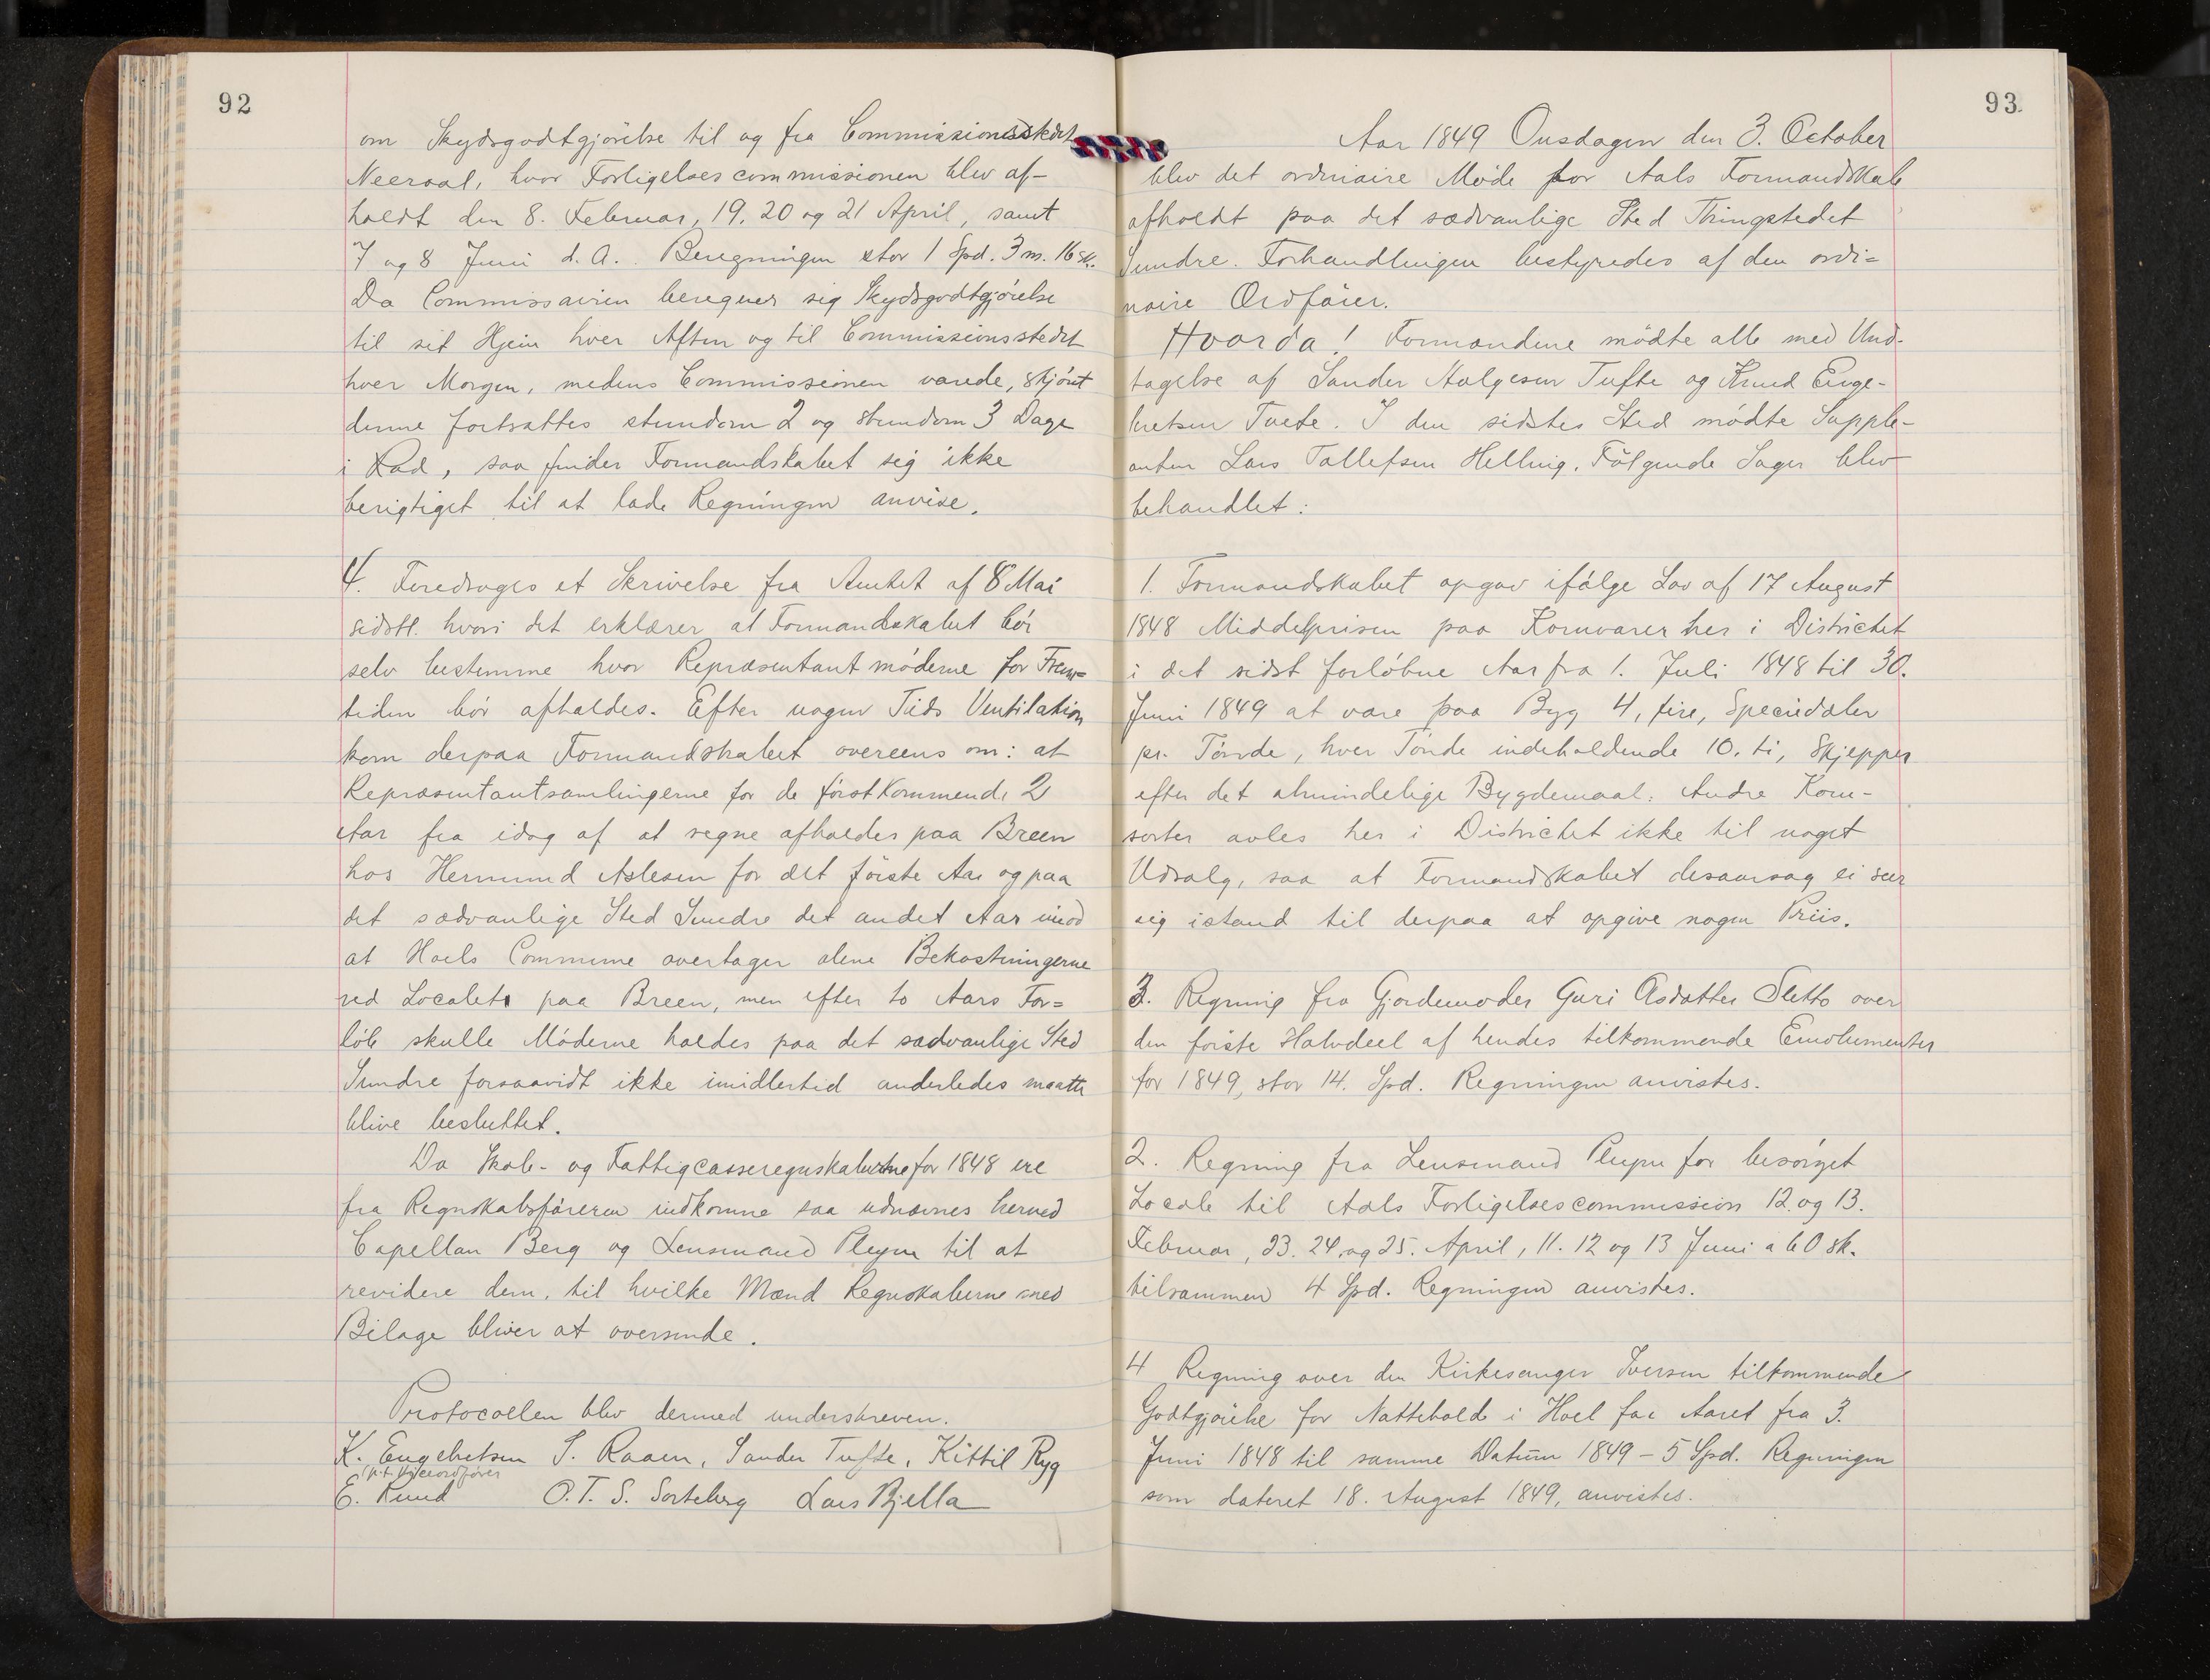 92
om Skydsgodtgjörelse til og fra Commissionsstedet
Neeraal, hvor Forligelsescommissionen blev af-
holdt den 8. Februar, 19. 20 og 21 April, samt
7 og 8 Juni d. A.. Beregningen stor 1 Spd. 3 m. 16 sk.
Da Commissairen beregner sig Skydsgodtgjörelse
til sit Hjem hver Aften og til Commissionsstedet
hver Morgen, medens Commissionen varede, skjönt
denne fortsattes stundom 2 og stundom 3 Dage
i Rad, saa finder Formandskabet sig ikke
berigtiget til at lade Regningen anvise.
4. Foredroges et Skrivelse fra Amtet af 8 Mai
sidstl. hvori det erklærer at Formandskabet bör
selv bestemme hvor Repræsentantmöderne for Frem=
tiden bör afholdes. Efter nogen Tids Ventilation
kom derpaa Formandskabet overeens om: at
Repræsentantsamlingerne for de förstkommende 2
Aar fra idag af at regne afholdes paa Breen
hos Hermund Aslesen for det förste Aar og paa
det sædvanlige Sted Sundre det andet Aar imod
at Hoels Commune overtager alene Bekostningerne
ved Localet paa Breen, men efter to Aars For=
löb skulle Möderne holdes paa det sædvanlige Sted
Sundre forsaavidt ikke imidlertid anderledes maatte
blive besluttet.
Da Skole- og Fattigcasseregnskaberne for 1848 ere
fra Regnskabsföreren indkomne saa udnævnes herved
Capellan Berg og Lensmand Pleym til at
revidere dem, til hvilke Mænd Regnskaberne med
Bilage bliver at oversende.
Protocollen blev dermed underskreven.
K. Engebretsen S. Raaen, Sander Tufte, Kittil Ryg
(p.t. Viceordförer
E. Ruud O. T. S. Sorteberg Lars Bjella
93
Aar 1849 Onsdagen den 3. October
blev det ordinaire Möde for Aals Formandskab
afholdt paa det sædvanlige Sted Thingstedet
Sundre. Forhandlingen bestyredes af den ordi=
naire Ordförer.
Hvorda! Formændene mödte alle med Und-
tagelse af Sander Halgesen Tufte og Knud Enge-
bretsen Tvete. I den sidstes Sted mödte Supple-
anten Lars Tollefsen Helling. Fölgende Sager blev
behandlet:
1. Formandskabet opgav ifölge Lov af 17 August
1848 Middelprisen paa Kornvarer her i Districtet
i det sidst forlöbne Aar fra 1. Juli 1848 til 30.
Juni 1849 at være paa Byg 4, fire, Speciedaler
pr. Tönde, hver Tönde indeholdende 10. ti, Skjepper
efter det almindelige Bygdemaal. Andre Korn-
sorter avles her i Districtet ikke til noget
Udsalg, saa at Formandskabet desaarsag ei seer
sig istand til derpaa at opgive nogen Priis.
3. Regning fra Gjordemoder Guri Asdatter Sletto over
den förste Halvdeel af hendes tilkommende Emolumenter
for 1849, stor 14. Spd. Regningen anvistes.
2. Regning fra Lensmand Pleym for besörget
Locale til Aals Forligelsescommission 12. og 13.
Februar, 23. 24. og 25. April, 11. 12 og 13 Juni a 60 sk.
tilsammen 4 Spd. Regningen anvistes.
4 Regning over den Kirkesanger Iversen tilkommende
Godtgjörelse for Nattehold i Hoel for Aaret fra 3.
Juni 1848 til samme Datum 1849 - 5 Spd. Regningen
som dateret 18. August 1849, anvistes.